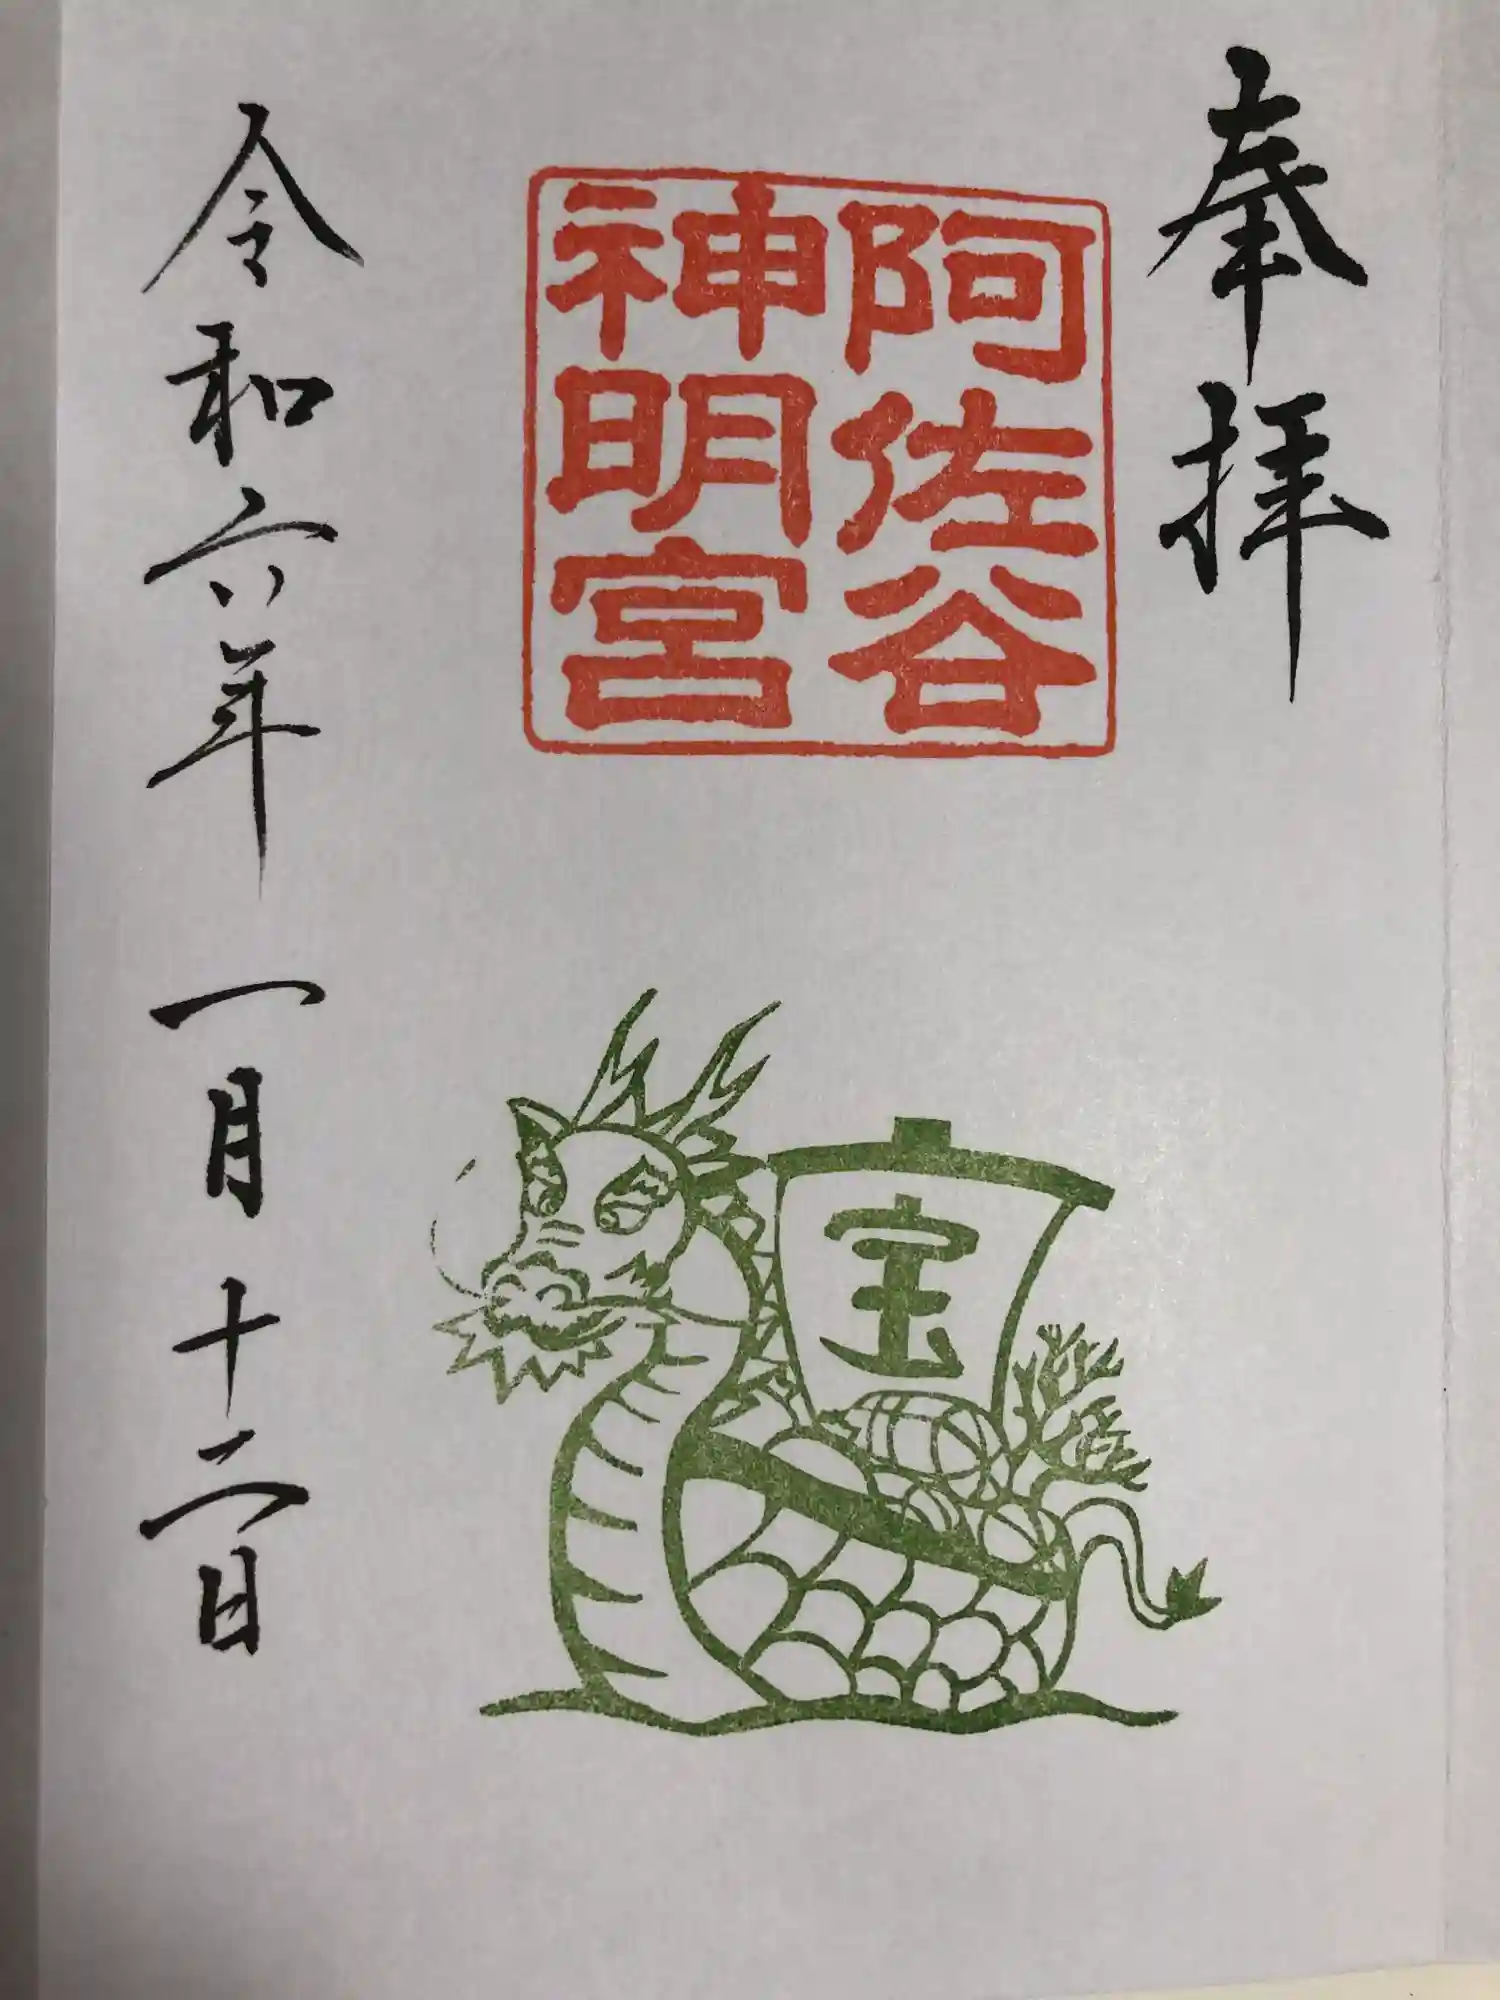 奉拝
阿佐谷
神明宮
宝
令和六年一月十二日